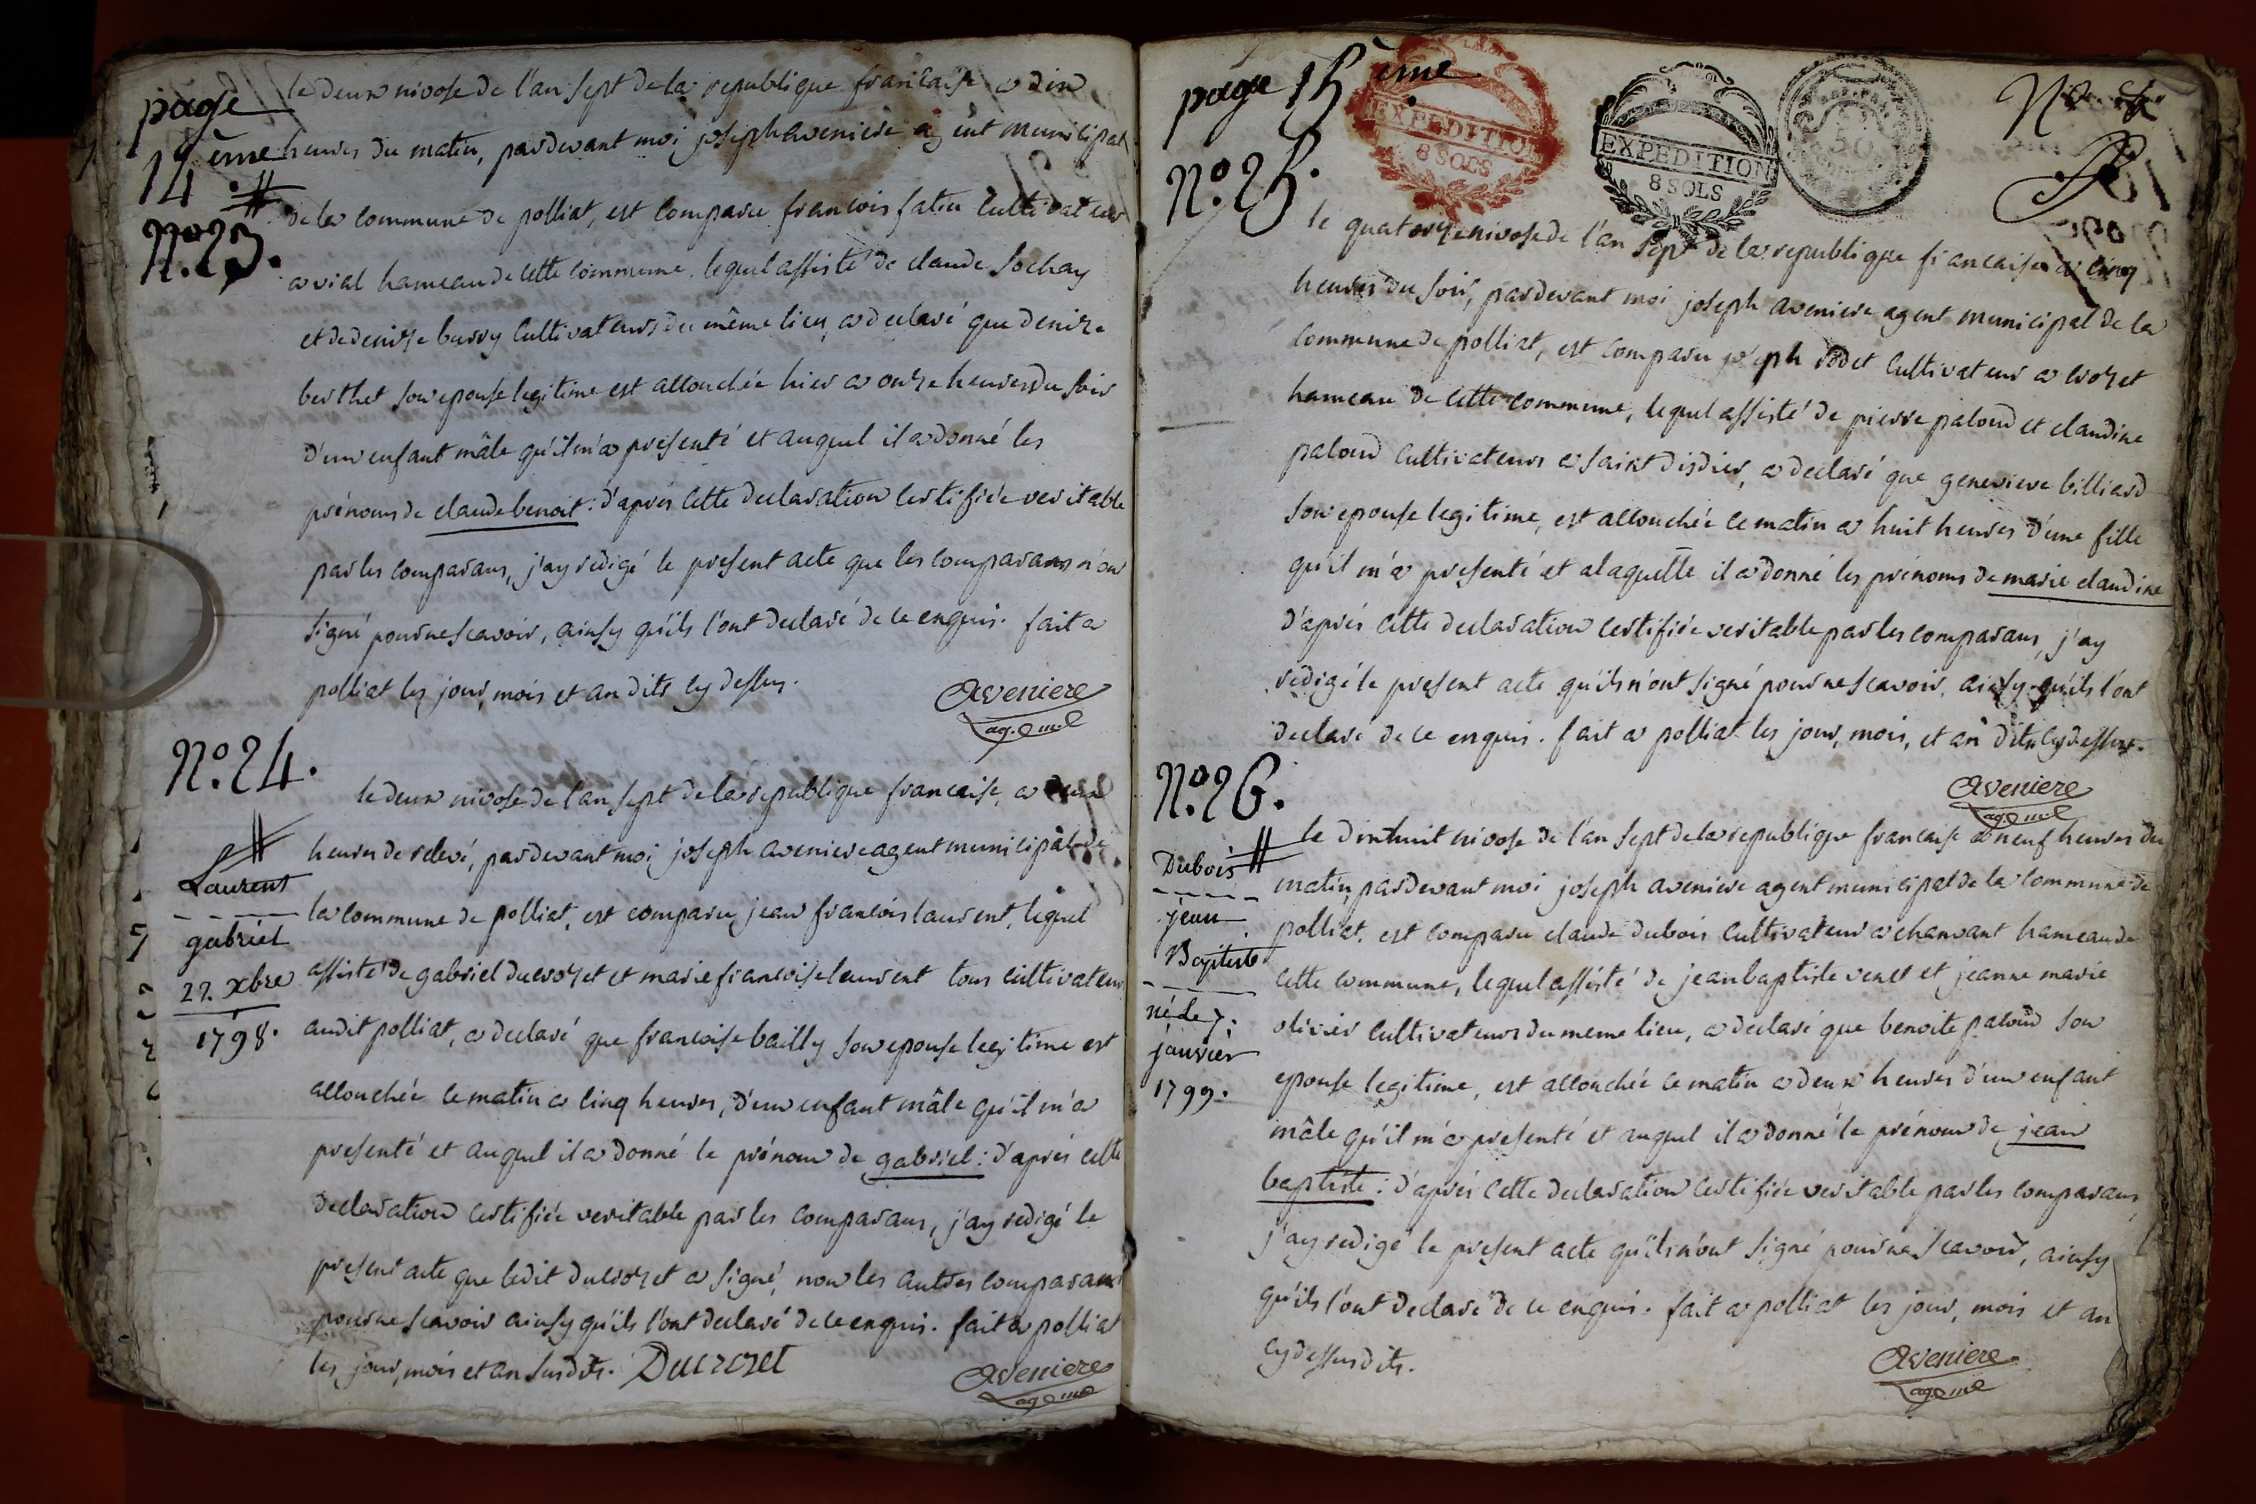 page
14 ème
N.o 23.
le deux nivose de l'an sept de la republique francaise a dix
heures du matin, pardevant moi joseph aveniere agent municipal
de la commune de polliat, est comparu francois fatin cultivateur
a vial hameau de cette commune, lequel assisté de claude sochay
et de denise burry cultivateurs du même lieu, a declaré que denise
berthet son epouse legitime est accouchée hier a onze heures du soir
d'un enfant mâle qu'il m'a presenté et auquel il a donné les
prénoms de claude benoit : d'aprés cette declaration certifiée veritable
par les comparans, j'ay redigé le present acte que les comparans n'on
signé pour ne scavoir, ainsy qu'ils l'ont declaré de ce enquis. fait a
polliat les jour, mois et an dits cy dessus.
Aveniere
ag. mal
N.o 24.
Laurent
gabriel
22. Xbre
1798.
le deux nivose de l'an sept de la republique francaise, a deux
heures de relevé, pardevant moi joseph aveniere agent municipal de
la commune de polliat, est comparu jean francois laurent, lequel
assisté de gabriel ducrozet et marie francoise laurent tous cultivateurs
audit polliat, a declaré que francoise bailly son epouse legitime est
accouchée ce matin a cinq heures, d'un enfant mâle qu'il m'a
presenté et auquel il a donné le prénom de gabriel : d'aprés cette
declaration certifiée veritable par les comparans, j'ay redigé le
present acte que ledit ducrozet a signé, non les autres comparans
pour ne scavoir ainsy qu'ils l'ont declaré de ce enquis. fait a polliat
les jour, mois et an susdits. Ducrozet
Aveniere
ag. mal
page 15 ème
EXPEDITION
8 SOLS
EXPEDITION
8 SOLS
50
N.o 25.
le quatorze nivose de l'an sept de la republique francaise a cinq
heures du soir, pardevant moi joseph aveniere agent municipal de la
commune de polliat, est comparu joseph rodet cultivateur a crozet
hameau de cette commune, lequel assisté de pierre paloud et claudine
paloud cultivateurs a saint disdier, a declaré que genevieve billiard
son epouse legitime, est accouchée ce matin a huit heures d'une fille
qu'il m'a presenté et a laquelle il a donné les prénoms de marie claudine
d'aprés cette declaration certifiée veritable par les comparans, j'ay
redigé le present acte qu'ils n'ont signé pour ne scavoir, ainsy qu'ils l'ont
declaré de ce enquis. fait a polliat les jour, mois, et an dits cy dessus.
Aveniere
ag. mal
N.o 26.
Dubois
jean
Baptiste
né le 7.
janvier
1799.
le dixhuit nivose de l'an sept de la republique francaise a neuf heures du
matin, pardevant moi joseph aveniere agent municipal de la commune de
polliat, est comparu claude dubois cultivateur a chanvant hameau de
cette commune, lequel assisté de jean baptiste venet et jeanne marie
olivier cultivateurs du meme lieu, a declaré que benoite paloud son
epouse legitime, est accouchée ce matin a deux heures d'un enfant
mâle qu'il m'a presenté et auquel il a donné le prénom de jean
baptiste : d'aprés cette declaration certifiée veritable par les comparans,
j'ay redigé le present acte qu'ils n'ont signé pour ne scavoir, ainsy
qu'ils l'ont declaré de ce enquis. fait a polliat les jour, mois et an
cy dessus dits.
Aveniere
ag. mal